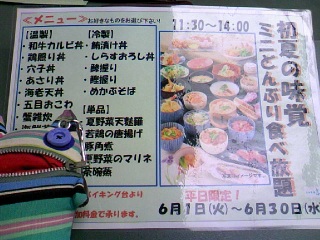 <メニュー>お好きなものをお選び下さい!
11:30~14:00
初夏の味覚
ミニどんぶり食べ放題
[温製]
・和牛カルビ丼
・鶏照り丼
・穴子丼
・あさり丼
・海老天丼
五目おこわ
蟹雑炊
[冷製]
・鮪漬け丼
・しらすおろし丼
・鯵握り
・鰹握り
・めかぶそば
[単品]
夏野菜天麩羅
若鶏の唐揚げ
豚角煮
夏野菜のマリネ
茶碗蒸
バイキング台より
加料金で承ります。
平日限定!
6月1日(火)~6月30日(水